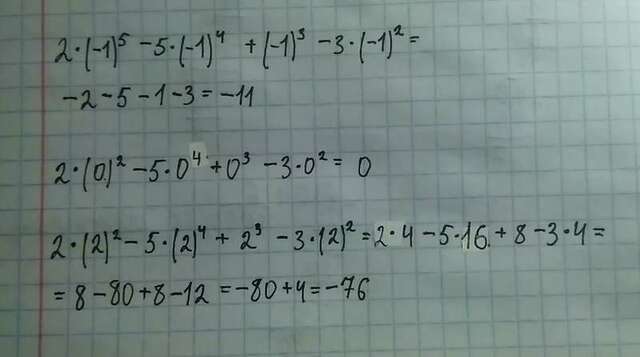 2·(-1)⁵ - 5·(-1)⁴ + (-1)³ - 3·(-1)² =
-2 - 5 - 1 - 3 = -11
2·(0)² - 5·0⁴ + 0³ - 3·0² = 0
2·(2)² - 5·(2)⁴ + 2³ - 3·(2)² = 2·4 - 5·16 + 8 - 3·4 =
= 8 - 80 + 8 - 12 = -80 + 4 = -76